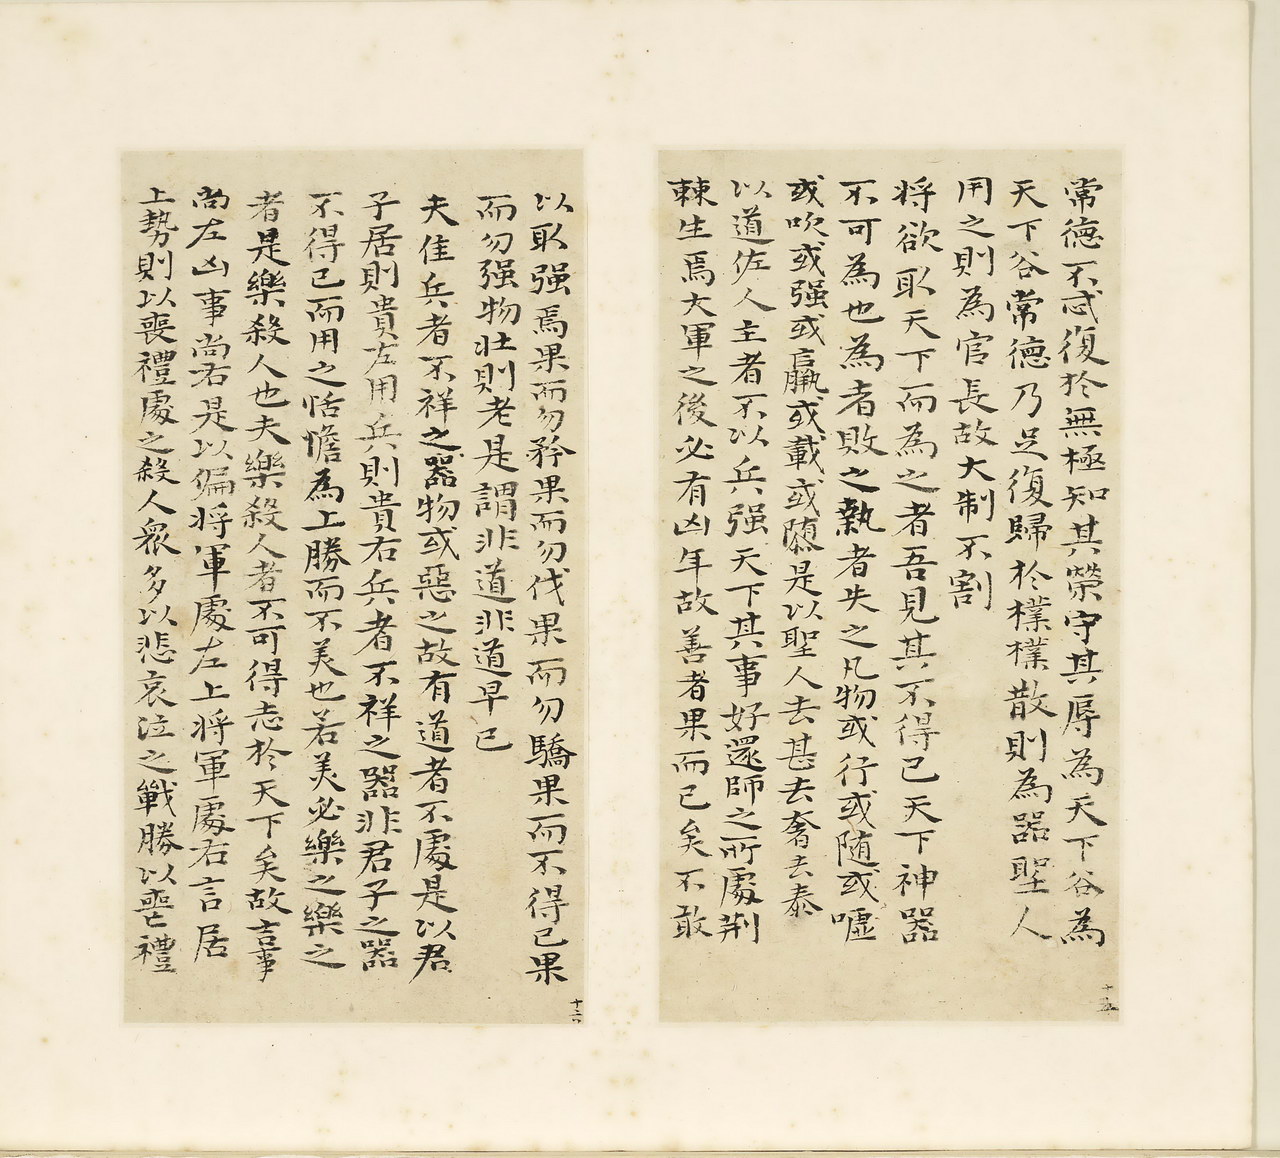 常德不忒復於無極知其榮守其辱為天下谷為
天下谷常德乃足復歸於樸樸散則為器聖人
用之則為官長故大制不割
将欲取天下而為之者吾見其不得已天下神器
不可為也為者敗之執者失之凡物或行或随或嘘
或吹或强或羸或載或隳是以聖人去甚去奢去泰
以道佐人主者不以兵强天下其事好還師之所處荆
棘生焉大軍之後必有凶年故善者果而已矣不敢
十五
以取强焉果而勿矜果而勿伐果而勿驕果而不得已果
而勿强物壮則老是謂非道非道早已
夫佳兵者不祥之器物或惡之故有道者不處是以君
子居則貴左用兵則貴右兵者不祥之器非君子之器
不得已而用之恬憺為上勝而不美也若美必樂之樂之
者是樂殺人也夫樂殺人者不可得志於天下矣故吉事
尚左凶事尚右是以偏将軍處左上将軍處右言居
上勢則以喪禮處之殺人衆多以悲哀泣之戰勝以喪禮
十六